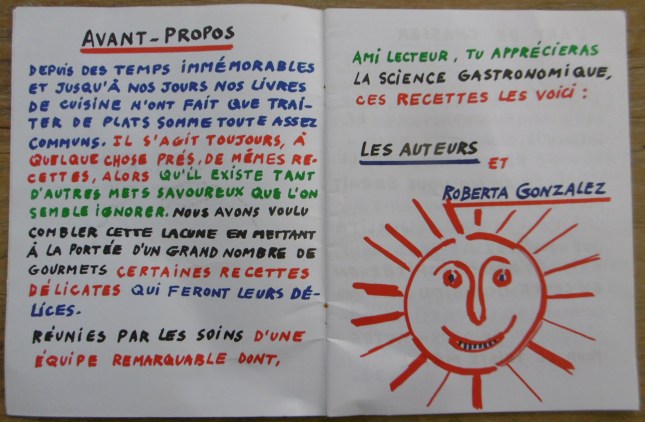 AVANT-PROPOS
DEPUIS DES TEMPS IMMÉMORABLES
ET JUSQU'À NOS JOURS NOS LIVRES
DE CUISINE N'ONT FAIT QUE TRAI-
TER DE PLATS SOMME TOUTE ASSEZ
COMMUNS. IL S'AGIT TOUJOURS, À
QUELQUE CHOSE PRÉS, DE MÊMES RE-
CETTES, ALORS QU'IL EXISTE TANT
D'AUTRES METS SAVOUREUX QUE L'ON
SEMBLE IGNORER. NOUS AVONS VOULU
COMBLER CETTE LACUNE EN METTANT
À LA PORTÉE D'UN GRAND NOMBRE DE
GOURMETS CERTAINES RECETTES
DÉLICATES QUI FERONT LEURS DÉ-
LICES.
RÉUNIES PAR LES SOINS D'UNE
ÉQUIPE REMARQUABLE DONT,
AMI LECTEUR, TU APPRÉCIERAS
LA SCIENCE GASTRONOMIQUE,
CES RECETTES LES VOICI :
LES AUTEURS
ET
ROBERTA GONZALEZ